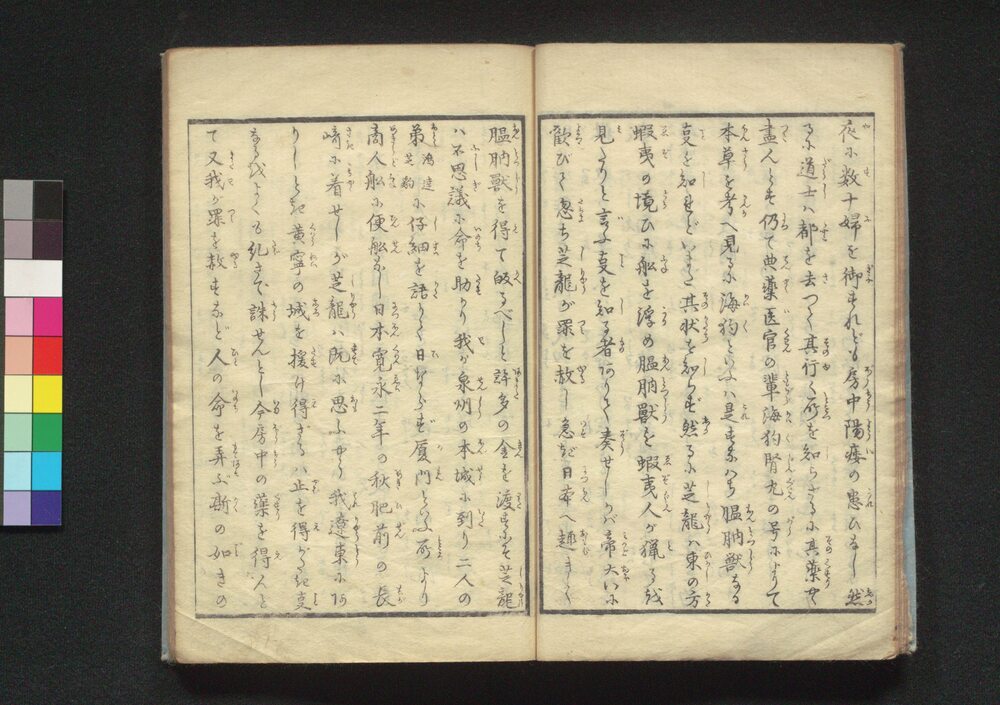 夜に数十婦を御すれども房中陽痿の患ひなし然
るに道士は都を去つて其行く所を知らざるに其薬せ
尽んとす仍て典薬医官の輩海狗腎丸の号によりて
本草を考へ見るに海狗といふは是すなはち膃肭獣なる
事を知れどいまだ其状を知らず然るに芝龍は東の方
蝦夷の境ひに船を浮め膃肭獣を蝦夷人が猟るを
見たりと言ふ事を知る者ありて奏せしかば帝大いに
歓びて忽ち芝龍が罪を赦し急ぎ日本へ趣きて
膃肭獣を得て皈るべしと許多の金を渡すにぞ芝龍
は不思議に命を助かり我が泉州の本城に到り二人の
弟鴻逵芝豹に仔細を語りて日ならず厦門といふ所より
商人船に便船なし日本寛永二年の秋肥前の長
崎に着せしが芝龍は既に思ふやう我遼東にあ
りしとき黄寧の城を援け得ざるは止を得ざる事
なるをよくも糺さで誅せんとし今房中の薬を得んと
て又我が罪を赦すなど人の命を弄ぶ斯の如きの